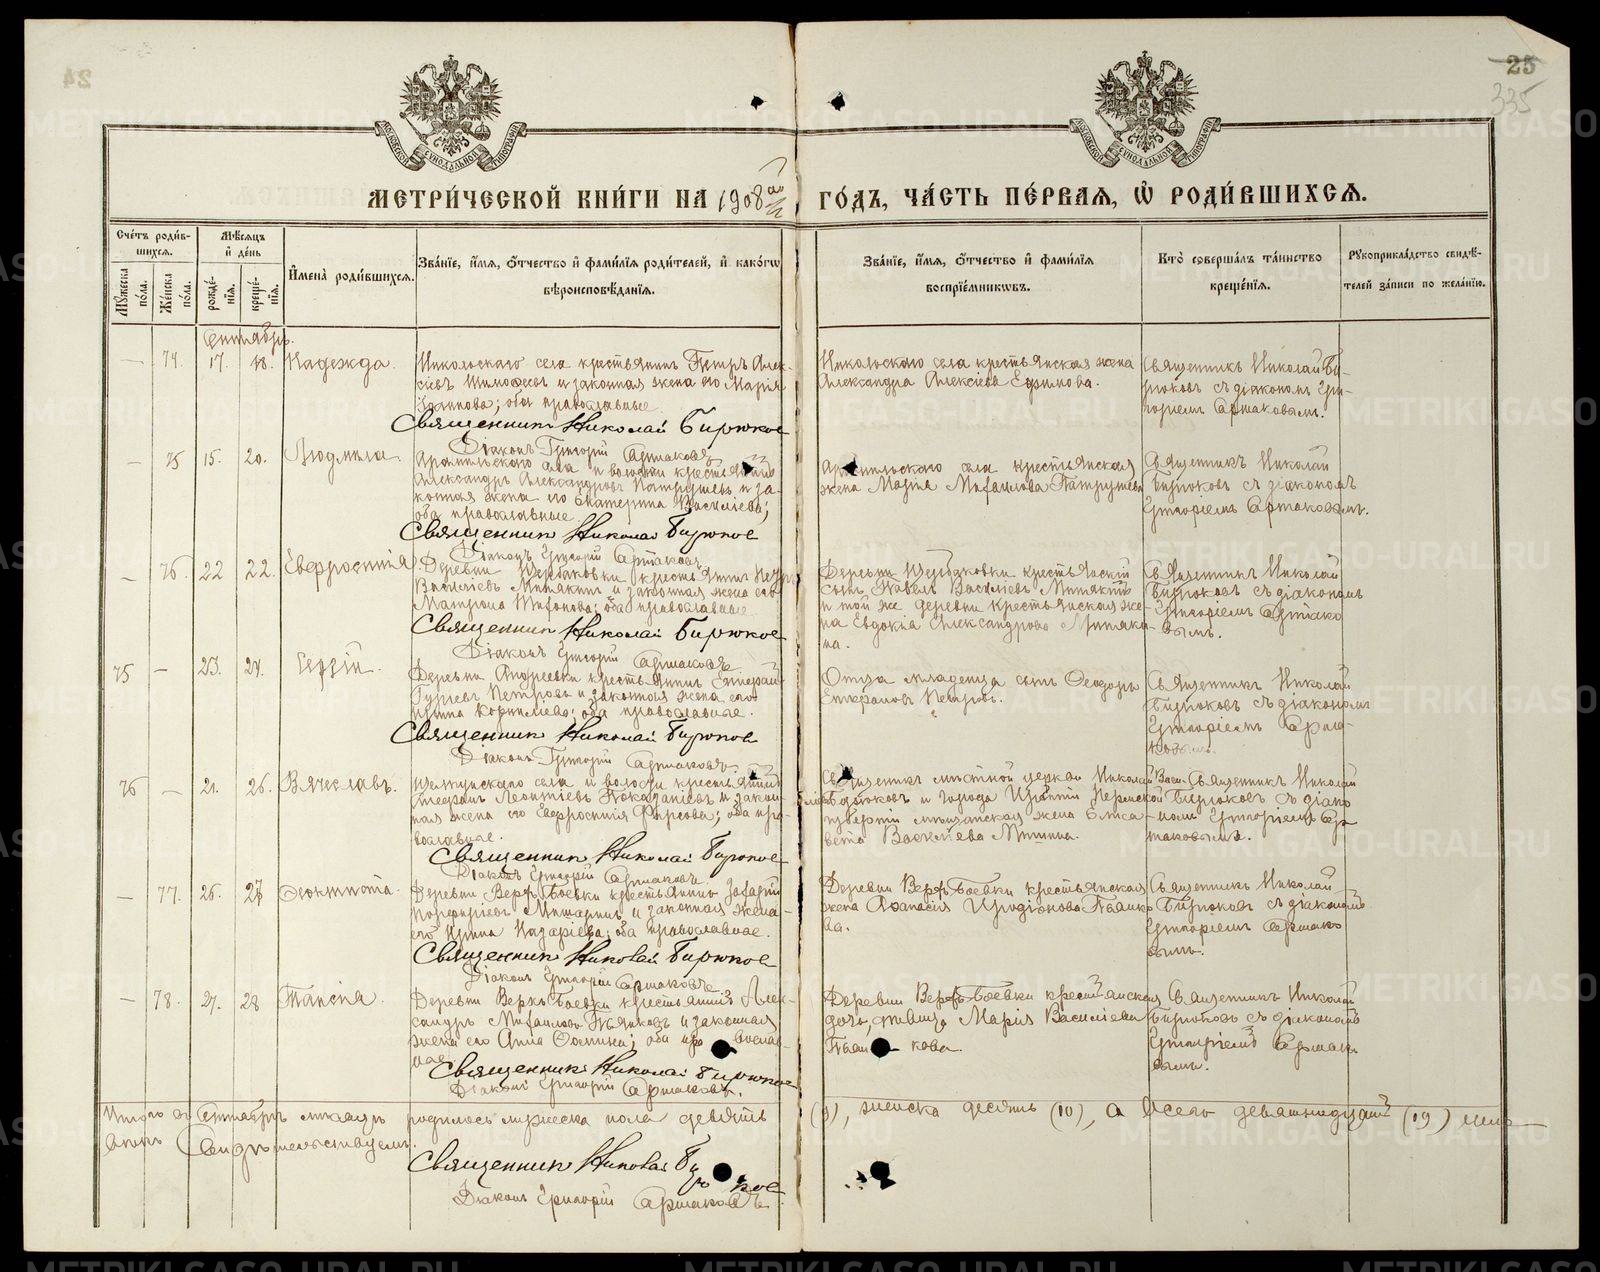 25
335
МОСКОВСКОЙ СѴНОДАЛЬНОЙ ТИПОГРАФІИ
МОСКОВСКОЙ СѴНОДАЛЬНОЙ ТИПОГРАФІИ
МЕТРИ́ЧЕСКОЙ КНИ́ГИ НА 1908 ГО́ДЪ, ЧА́СТЬ ПЕ́РВАѦ, Ѡ҆ РОДИ́ВШИХСѦ.
Сче́тъ роди́в-
шихсѧ.
Мꙋ́жеска по́ла.
Же́нска по́ла.
Мѣ́сѧцъ и҆ де́нь
рожде́-
нїѧ.
креще́-
нїѧ.
И҆мена̀ роди́вшихсѧ.
Зва́нїе, и҆́мѧ, ѻ҆́тчество и҆ фами́лїѧ роди́телей, и҆ како́гѡ
вѣроисповѣ́данїѧ.
Зва́нїе, и҆́мѧ, ѻ҆́тчество и҆ фами́лїѧ
воспрїе́мникѡвъ.
Кто̀ соверша́лъ та́инство
креще́нїѧ.
Рꙋкоприкла́дство свидѣ́-
телей за́писи по жела́нїю.
Сентябрь.
— 74. 17. 18. Надежда.
Никольскаго села крестьянинъ Петръ Алек-
сіевъ Тимофеевъ и законная жена его Марія
оба православные.
Священникъ Николай Бирюковъ
Діаконъ Григорій
Никольскаго села крестьянская жена
Александра Алексіева Ефимова.
Священникъ Николай Би-
рюковъ съ діакономъ Гри-
горіемъ
— 75 15. 20. Людмила
села и волости крестьянинъ
Александръ Александровъ Патрушевъ и за-
конная жена его Екатерина Василіева;
оба православные.
Священникъ Николай Бирюковъ
Діаконъ Григорій
села крестьянская
жена Марія Михаилова Патрушева
Священникъ Николай
Бирюковъ съ діакономъ
Григоріемъ
— 76. 22 22. Евфросинія.
Деревни Щербаковки крестьянинъ Петръ
Василіевъ Митякинъ и законная жена его
Матрона оба православные.
Священникъ Николай Бирюковъ
Діаконъ Григорій
Деревни Щербаковки крестьянскій
сынъ Павелъ Василіевъ Митякинъ
и той же деревни крестьянская же-
на Евдокія Александрова Митяки-
на.
Священникъ Николай
Бирюковъ съ діакономъ
Григоріемъ
75 — 23. 24. Сергій.
Деревни Андреевки крестьянинъ
Петровъ и законная жена его
Ирина Корниліева; оба православные.
Священникъ Николай Бирюковъ
Діаконъ Григорій
Отца младенца сынъ Ѳеодоръ
Петровъ.
Священникъ Николай
Бирюковъ съ діакономъ
Григоріемъ
76 — 21. 26. Вячеславъ.
села и волости крестьянинъ
Стефанъ Леонтіевъ и закон-
ная жена его Евфросинія Фирсова; оба пра-
вославные.
Священникъ Николай Бирюковъ
Діаконъ Григорій
Священникъ мѣстной церкви Николай
Бирюковъ и города Пермской
губерніи мѣщанская жена Елиса-
вета Василіева Мишина.
Священникъ Николай
Бирюковъ съ діако-
номъ Григоріемъ
— 77. 26. 27
Деревни Верхъ Боевки крестьянинъ Захарій
Порфиріевъ и законная жена
его Ирина Назаріева; оба православные.
Священникъ Николай Бирюковъ
Діаконъ Григорій
Деревни Верхъ Боевки крестьянская
жена Аѳанасія Иродіонова Пьянко-
ва.
Священникъ Николай
Бирюковъ съ діакономъ
Григоріемъ
— 78. 27. 28 Таисія.
Деревни Верхъ Боевки крестьянинъ Алек-
сандръ Михаиловъ Пьянковъ и законная
жена его Анна Ѳомина; оба православ-
ные.
Священникъ Николай Бирюковъ
Діаконъ Григорій
Деревни Верхъ Боевки крестьянская
дочь, дѣвица Марія Василіева
Пьянкова.
Священникъ Николай
Бирюковъ съ діакономъ
Григоріемъ
Итого въ Сентябрѣ мѣсяцѣ родилось мужеска пола девять (9), женска десять (10), а всего девятнадцать (19)
Свидѣтельствуемъ:
Священникъ Николай Бирюковъ
Діаконъ Григорій
METRIKI.GASO-URAL.RU